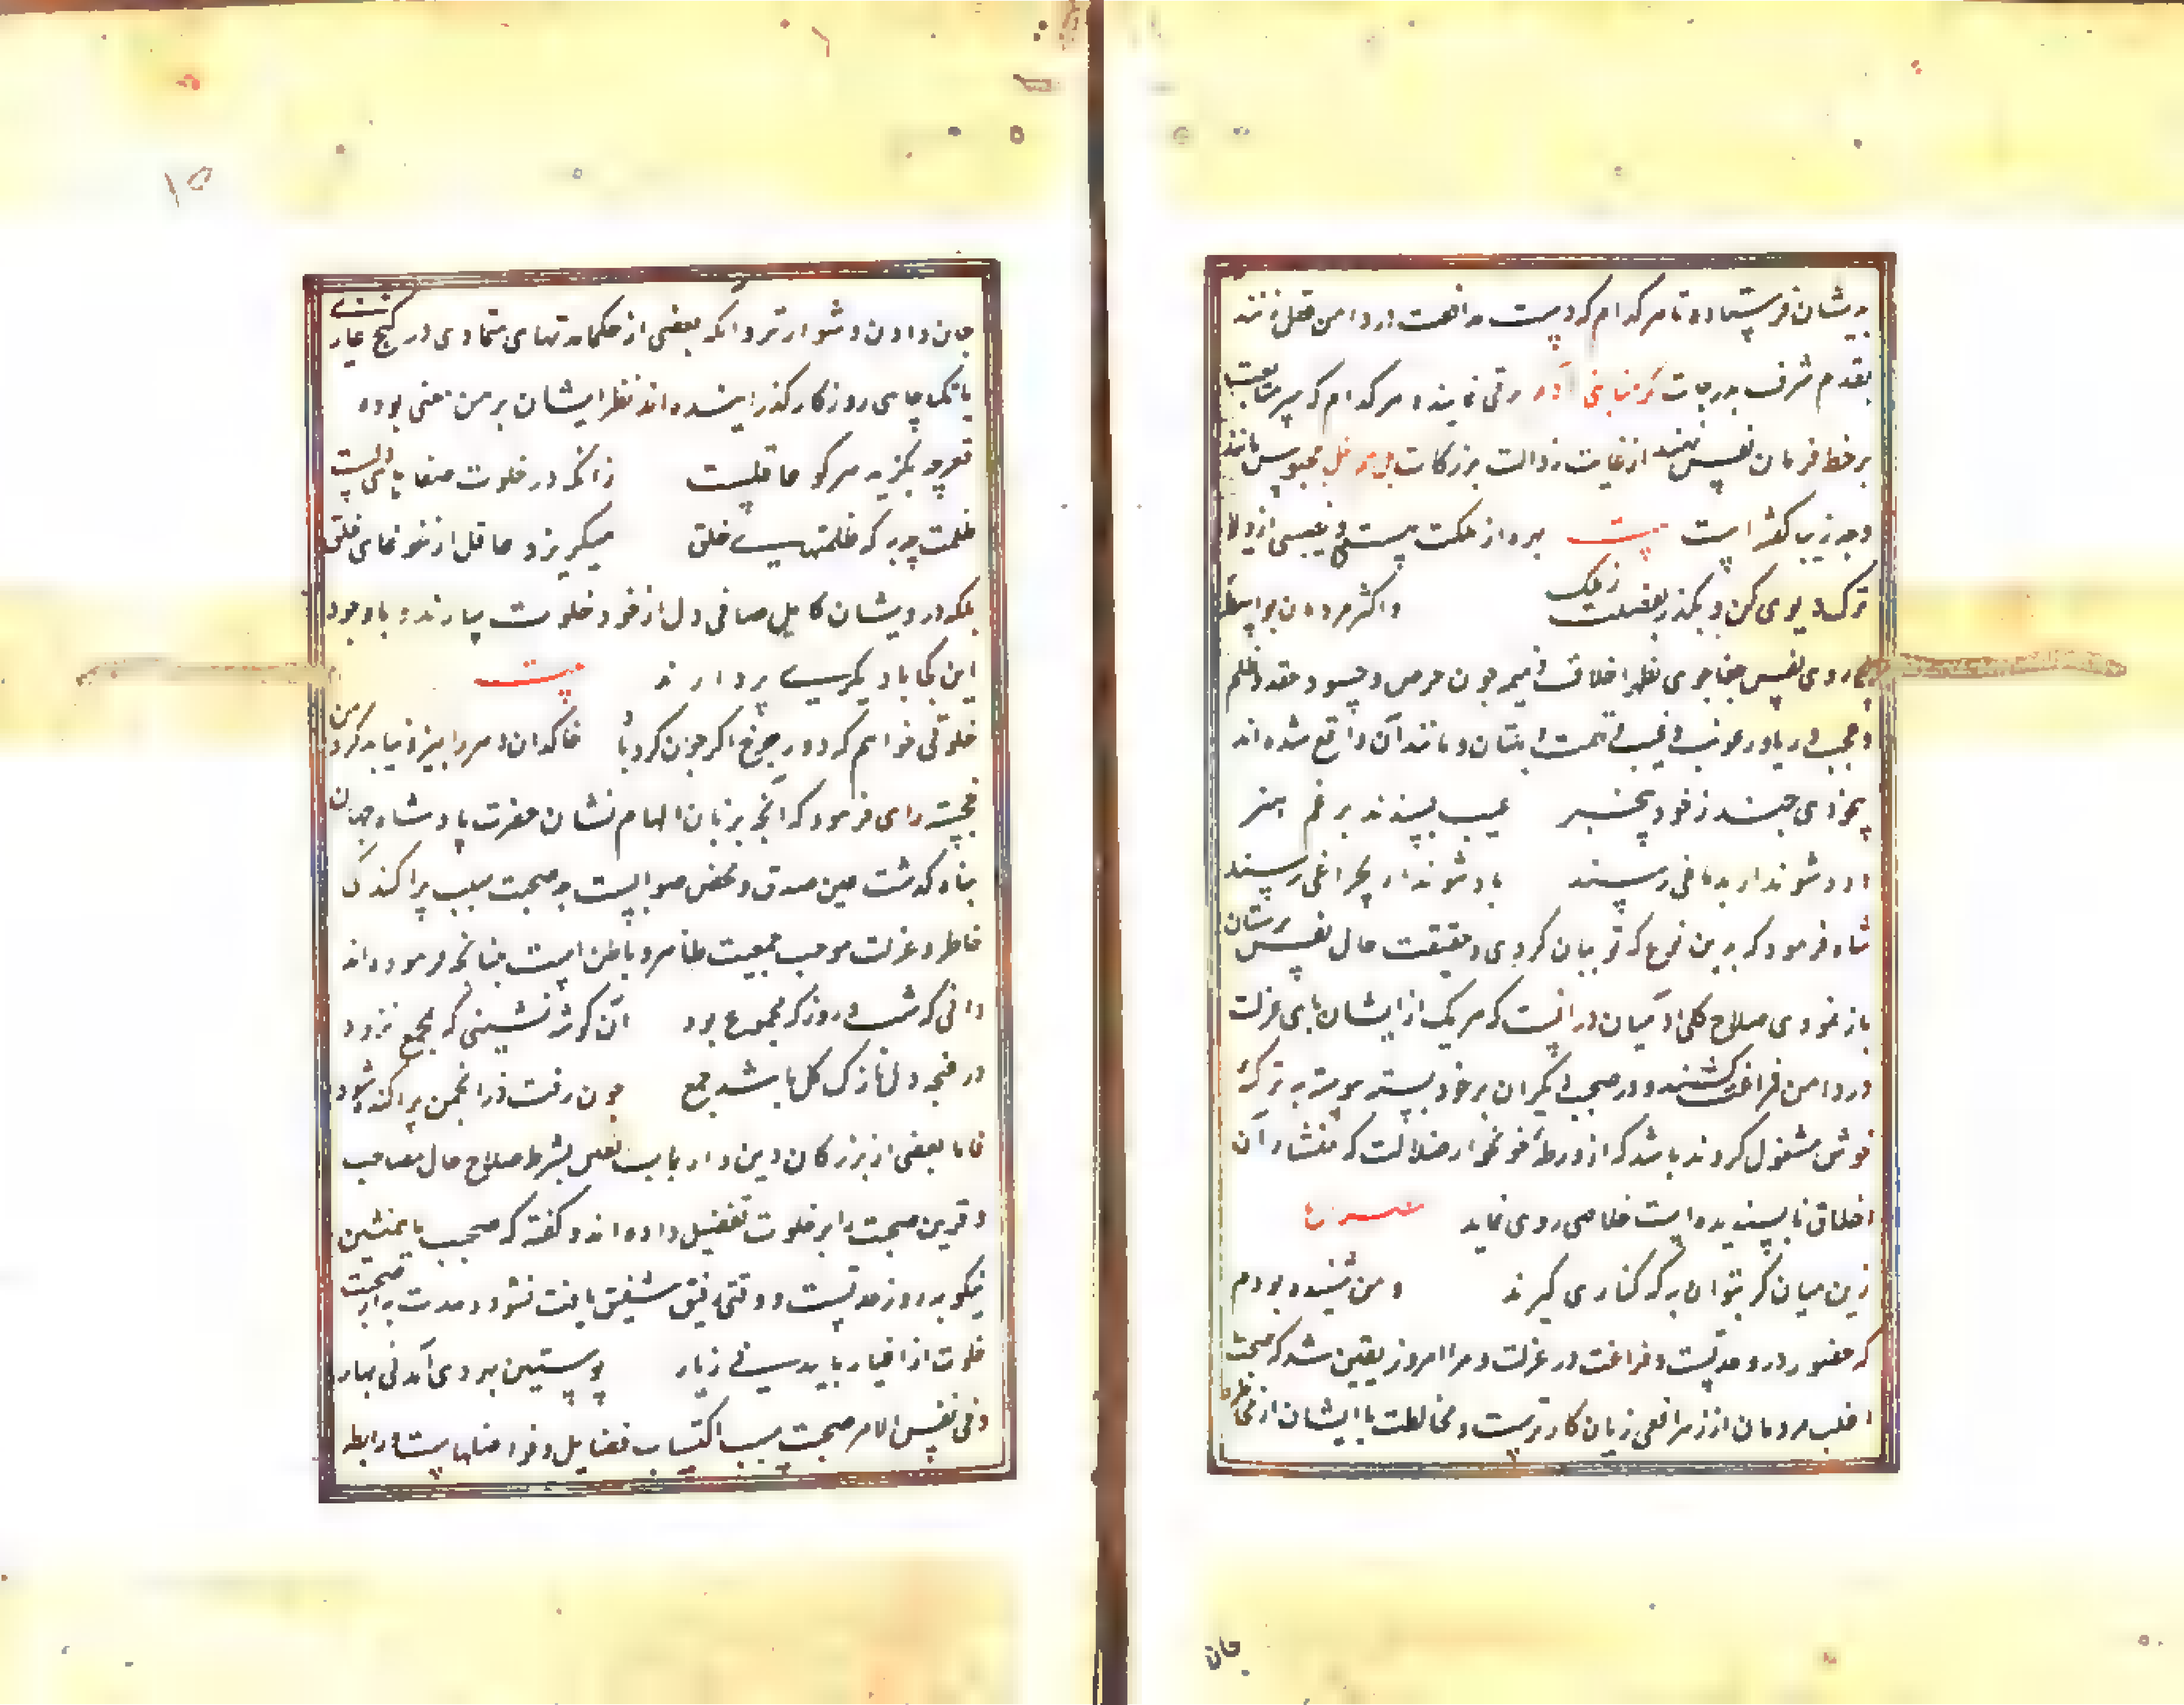 بدیشان فرستاده تا هر کدام که دست مرافقت در دامن عقل زنند
بقدم شرف بدرجات کرمنا بنی آدم ترقی نمایند و هر کدام که سر متابعت
بر خط فرمان نفس نهند از غایت رذالت بدرکات بل هم اضل محبوس مانند
و چه زیبا گفته است بیت بهره از ملکت هست و نصیبی از دیو
ترک دیوی کن و بگذر بفضیلت ز ملک و اکثر مردمان بواسطه
پی روی نفس جفاجوی مظهر اخلاق ذمیمه چون حرص و حسد و حقد و ظلم
و عجب و ریا و رعونت و غیبت و تهمت و بهتان و مانند آن واقع شده اند
بیخردی چند ز خود بیخبر عیب پسندند بر غم هنر
دود شوند ار بدماغی رسند باد شوند ار بچراغی رسند
شاه فرمود که بدین نوع که تو بیان کردی و حقیقت حال نفس پرستان
باز نمودی صلاح کلی آدمیان در آنست که هر یک از ایشان پای عزلت
در دامن فراغت کشند و در صحبت دیگران بر خود بسته پیوسته بتزکیه
خوش مشغول گردند باشد که از ورطه خونخوار ضلالت که منشاء آن
اخلاق ناپسندیده است خلاصی روی نماید مصراع
زین میان گر بتوان به که کناری گیرند و من شنیده بودم
که حضور در وحدتست و فراغت در عزلت و مرا امروز یقین شد که صحبت
اغلب مردمان از زهر افعی زیان کارترست و مخالطت با ایشان از مخاطره
جان
۱۵
جان دادن دشوارتر و آنکه بعضی از حکما مدتهای متمادی در کنج غار
یا تک چاهی روزگار گذرانیده اند نظر ایشان برین معنی بوده
قعر چه بگزید هر کو عاقلست زانکه در خلوت صفاهای دلست
ظلمت چه به که ظلمتهای خلق میگریزد عاقل از غوغای خلق
بلکه درویشان کامل صافی دل از خود خلوت سازند و با وجود
این کجا با دیگری پردازند بیت
خلوتی خواهم که دور چرخ اگر چون گردباد خاکدان دهر را بیزد نیابد گرد من
خجسته رای فرمود که آنچه بر زبان الهام نشان حضرت پادشاه جهان
پناه گذشت عین صدق و محض صوابست چه صحبت سبب پراکندگی
خاطر و عزلت موجب جمعیت ظاهر و باطن است چنانچه فرموده اند
دانی که شب و روز که مجموع بود آن گوشه نشینی که بجمع نرود
در غنچه دل نازک گل باشد جمع چون رفت در انجمن پراکنده شود
فاما بعضی از بزرگان دین و ارباب یقین بشرط صلاح حال مصاحب
و قرین صحبت را بر خلوت تفضیل داده اند و گفته که صحبت با همنشین
نیکو به از وحدتست و وقتی رفیق مشفق یافت نشود وحدت به از صحبت
خلوت از اغیار باید نی ز یار پوستین بهر دی آمد نی بهار
و فی نفس الامر صحبت سبب اکتساب فضایل و فواضلهاست و رابطه